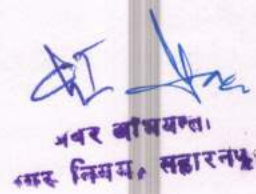 अवर अभियन्ता
नगर निगम, सहारनपुर